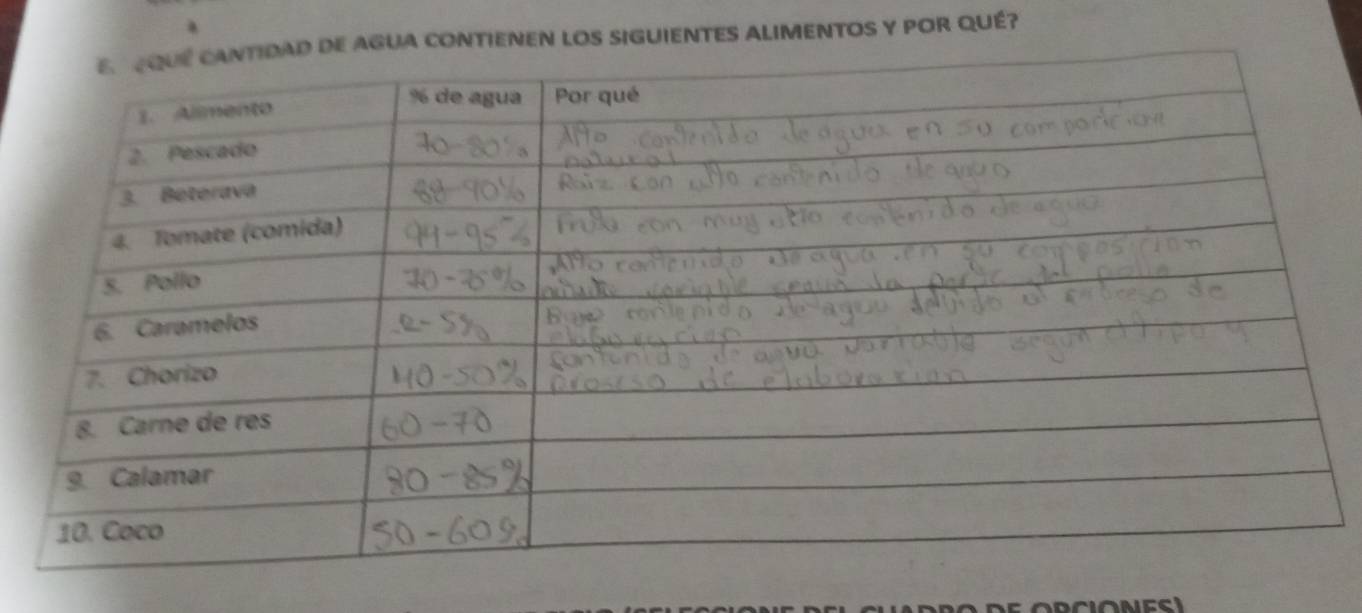 E. ¿QUÉ CANTIDAD DE AGUA CONTIENEN LOS SIGUIENTES ALIMENTOS Y POR QUÉ?
1. Alimento % de agua Por qué
2. Pescado 70-80% Alto contenido de agua en su composicion
natural
3. Beterava 88-90% Raiz con alto contenido de agua
4. Tomate (comida) 94-95% Fruto con muy alto contenido de agua
5. Pollo 70-75% Alto contenido de agua en su composicion
variable segun la parte del pollo
6. Caramelos 2-5% contenido de agua devido al proceso de
elaboracion
7. Chorizo 40-50% contenido de agua variable segun el tipo y
proseso de elaboracion
8. Carne de res 60-70
9. Calamar 80-85%
10. Coco 50-60%